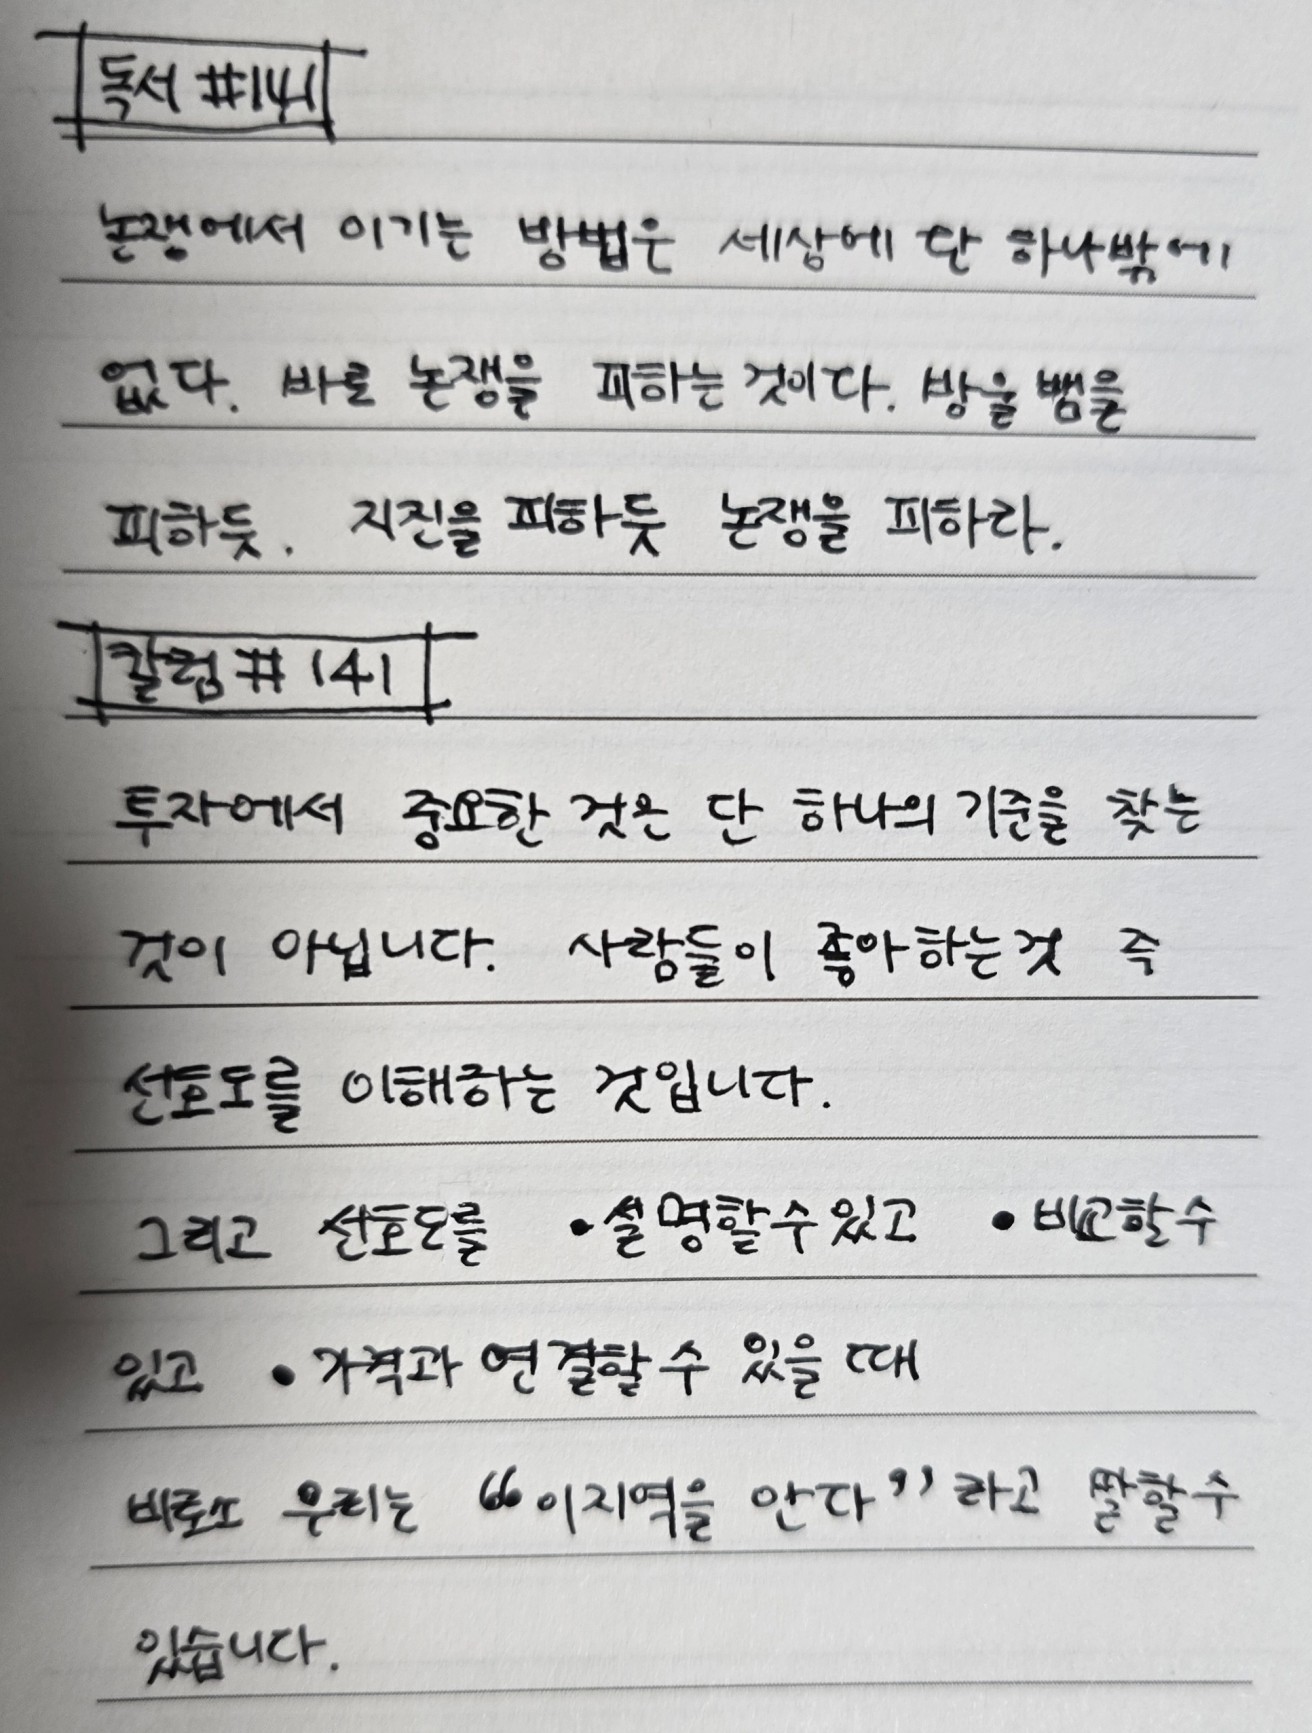 독서 #141
논쟁에서 이기는 방법은 세상에 단 하나밖에
없다. 바로 논쟁을 피하는 것이다. 방울뱀을
피하듯, 지진을 피하듯 논쟁을 피하라.
칼럼 # 141
투자에서 중요한 것은 단 하나의 기준을 찾는
것이 아닙니다. 사람들이 좋아하는것 즉
선호도를 이해하는 것입니다.
그리고 선호도를 • 설명할수있고 • 비교할수
있고 • 가격과 연결할수 있을 때
비로소 우리는 “이지역을 안다”라고 말할수
있습니다.